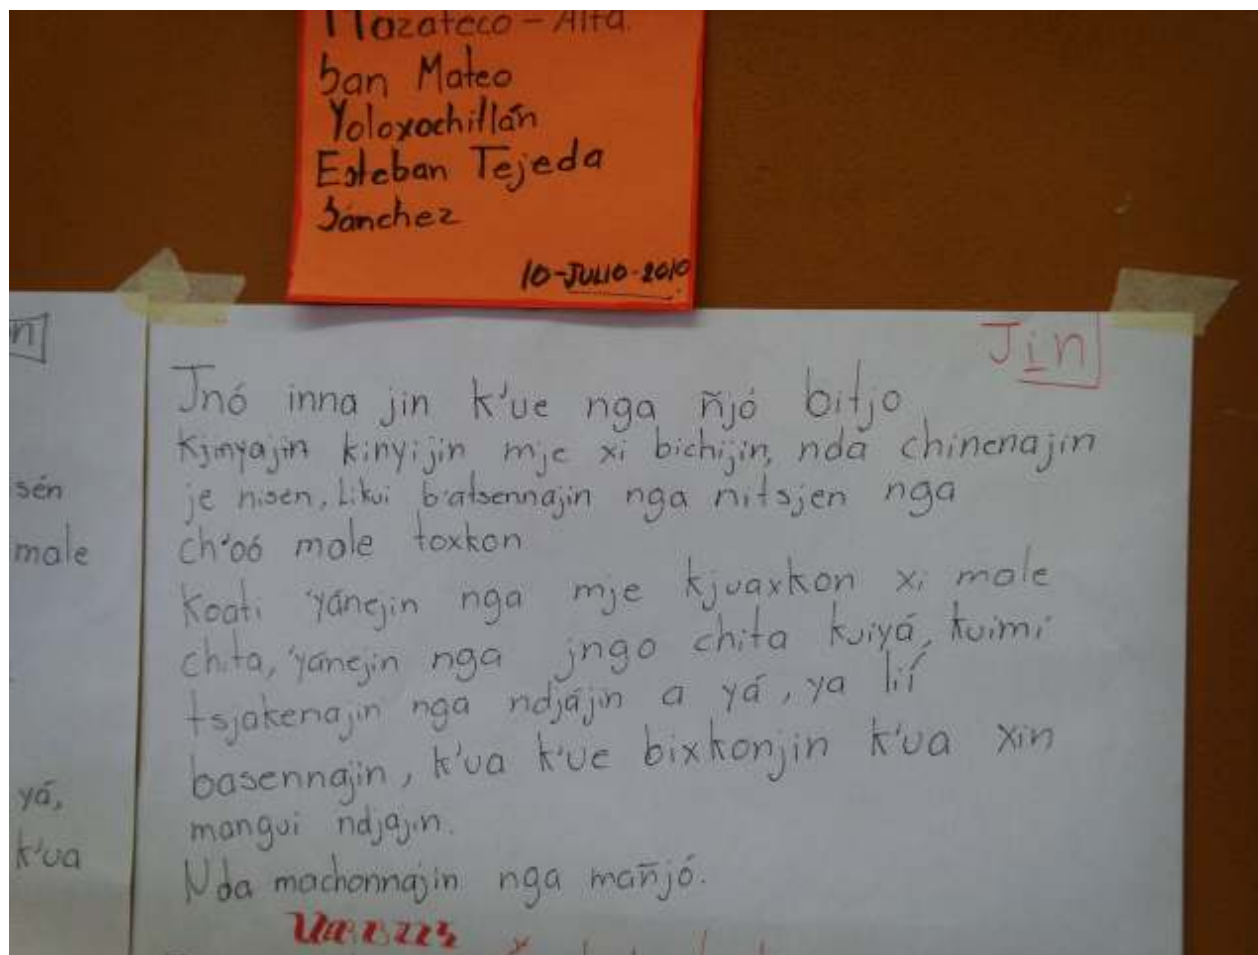 Mazateco - Alta.
San Mateo
Yoloxochitlán
Esteban Tejeda
Sánchez
10-JULIO-2010
n
sén
male
yá,
k'ua
Jin
Jnó inna jin k'ue nga ñjó bitjo
Kjinyajin kinyijin mje xi bichijin, nda chinenajin
je nisen, Likui b'atsennajin nga nitsjen nga
ch'oó male toxkon
Koati 'yánejin nga mje kjuaxkon xi male
chita, 'yánejin nga jngo chita kuiyá, kuimi
tsjakenajin nga ndjájin a yá, ya lií
basennajin, k'ua k'ue bixkonjin k'ua xin
mangui ndjajin.
Nda machonnajin nga mañjó.